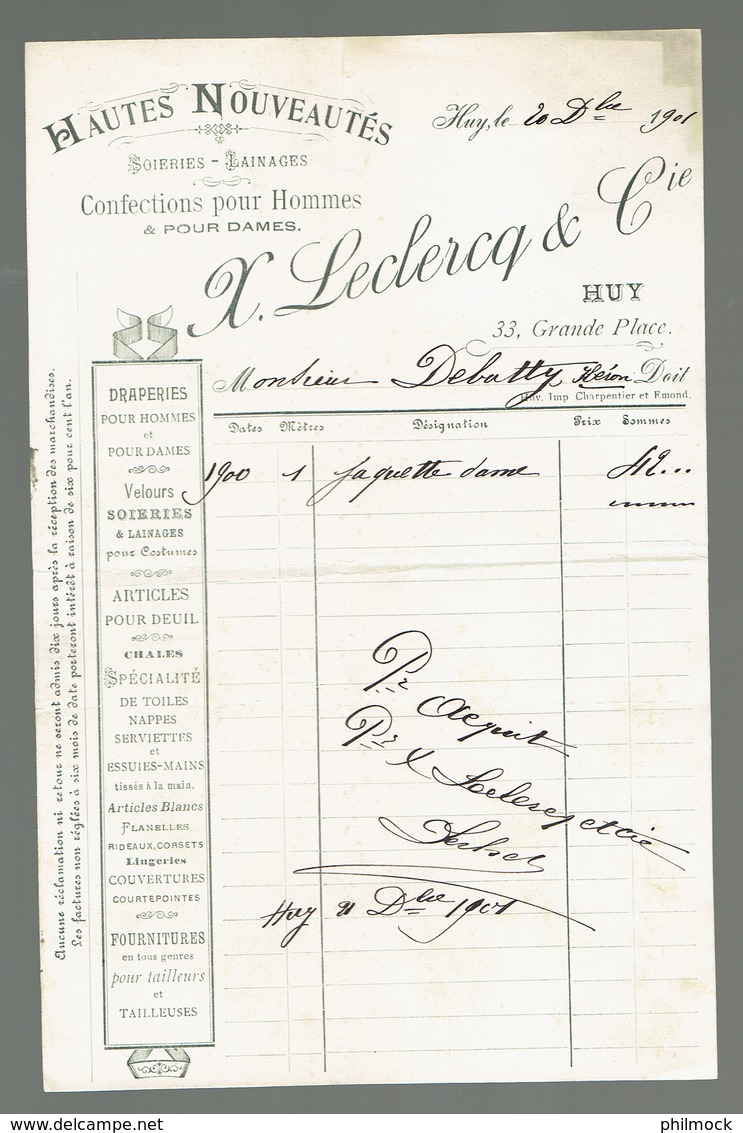 HAUTES NOUVEAUTÉS
SOIERIES - LAINAGES
Confections pour Hommes
& POUR DAMES.
Huy, le 20 Dbre 1901
X. Leclercq & Cie
HUY
33, Grande Place.
Monsieur Debatty Héron Doit
Huy. Imp Charpentier et Emond.
Dates Mètres Désignation Prix Sommes
1900 1 Jaquette dame 42...
DRAPERIES
POUR HOMMES
et
POUR DAMES
Velours
SOIERIES
& LAINAGES
pour Costumes
ARTICLES
POUR DEUIL
CHALES
SPÉCIALITÉ
DE TOILES
NAPPES
SERVIETTES
et
ESSUIES-MAINS
tissés à la main.
Articles Blancs
FLANELLES
RIDEAUX, CORSETS
Lingeries
COUVERTURES
COURTEPOINTES
FOURNITURES
en tous genres
pour tailleurs
et
TAILLEUSES
Aucune réclamation ni retour ne seront admis dix jours après la réception des marchandises.
Les factures non réglées à six mois de date porteront intérêt à raison de six pour cent l'an.
Pr Acquit
Pr X Leclercq et Cie
Huy 21 Dbre 1901
delcampe.net
philmock